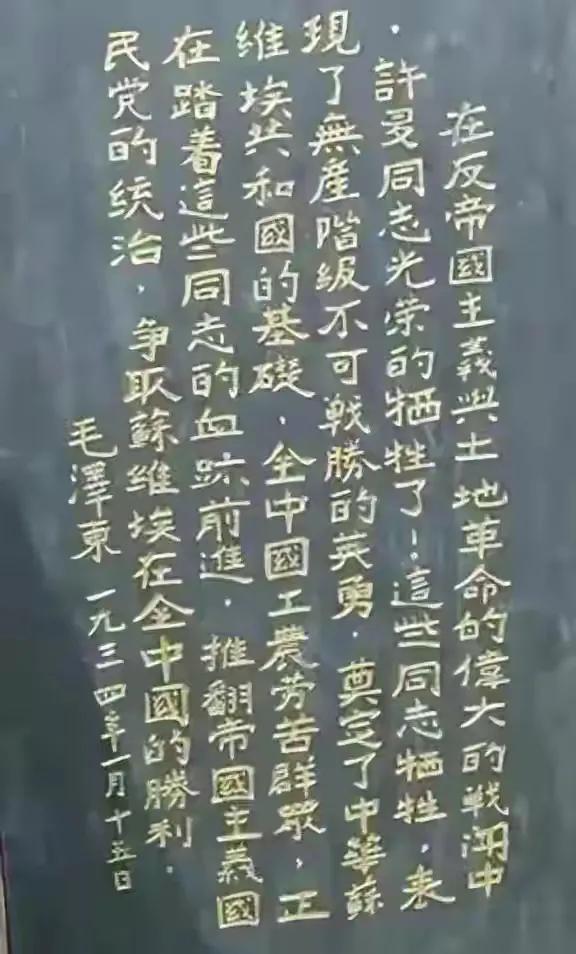 在反帝國主義與土地革命的偉大的战闘中
，許多同志光荣的牺牲了！這些同志牺牲，表
現了無產階級不可战勝的英勇，奠定了中華蘇
維埃共和國的基礎，全中國工農劳苦群眾，正
在踏着這些同志的血跡前進，推翻帝國主義國
民党的统治，争取蘇維埃在全中國的勝利。
毛澤東 一九三四年一月十五日